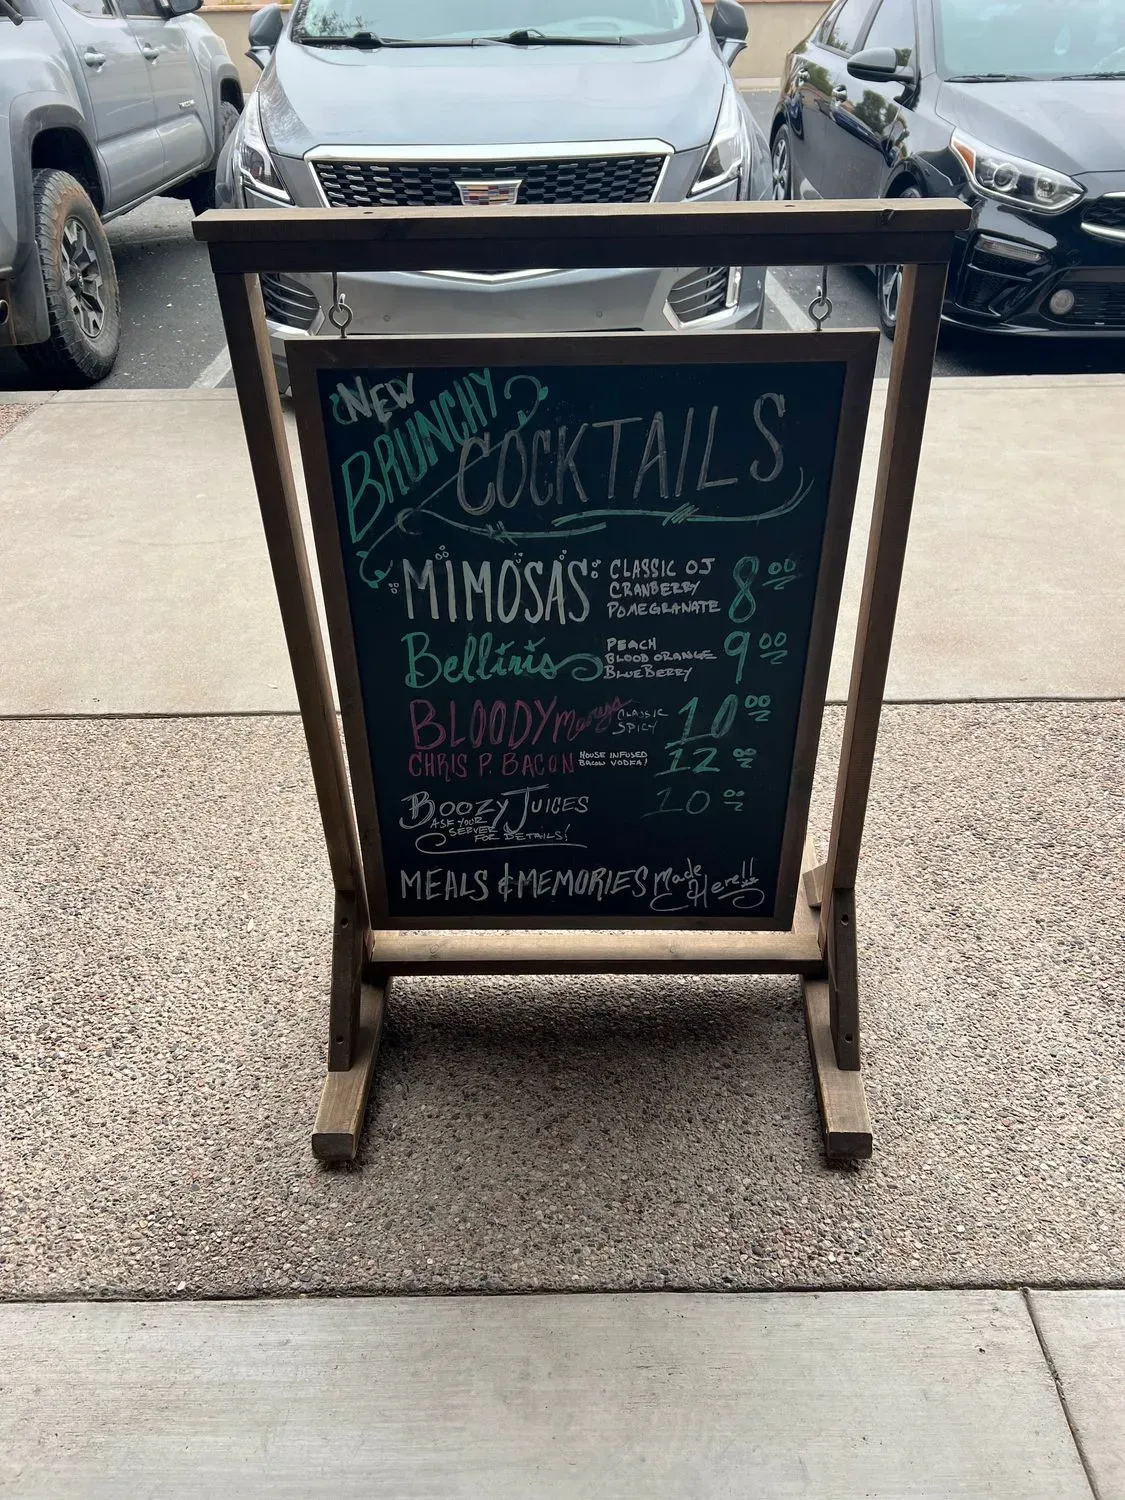 NEW
BRUNCHY
COCKTAILS
MIMOSAS: CLASSIC OJ 8.00
CRANBERRY
POMEGRANATE
Bellinis PEACH 9.00
BLOOD ORANGE
BLUEBERRY
BLOODY Marys CLASSIC 10.00
SPICY
CHRIS P. BACON HOUSE INFUSED BACON VODKA! 12.00
BOOZY JUICES 10.00
ASK YOUR
SERVER
FOR DETAILS!
MEALS & MEMORIES Made Here!!